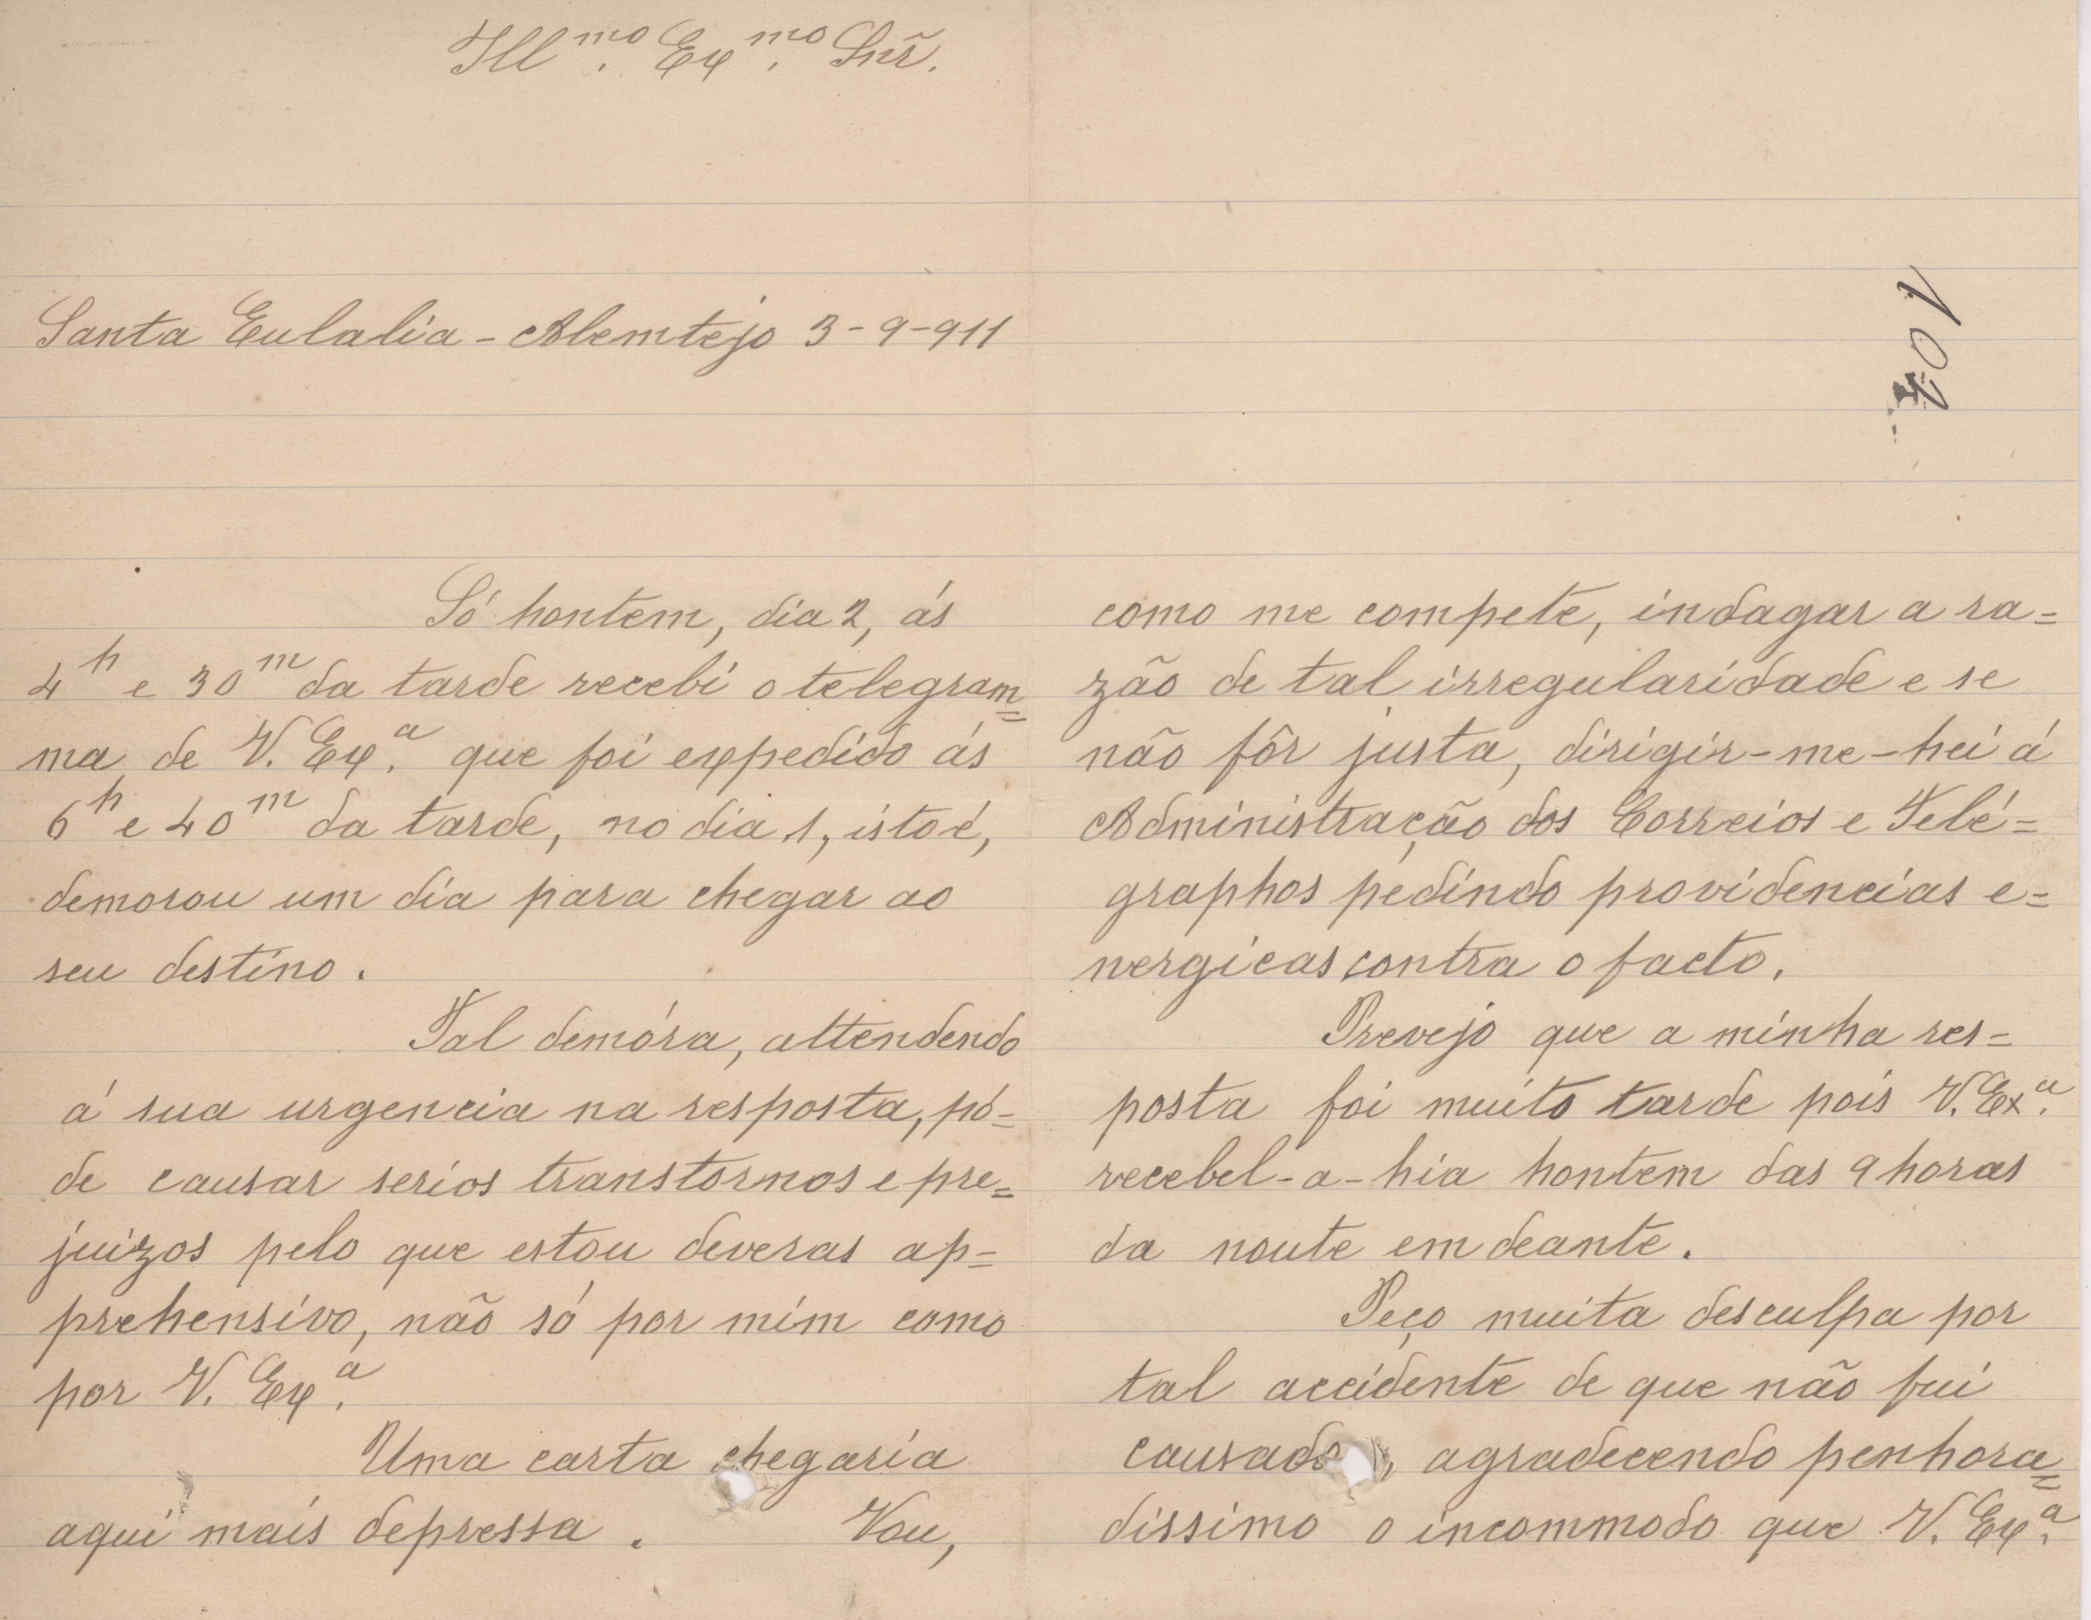 Illmo. Exmo. Snr̃.
Santa Eulalia - Alemtejo 3-9-911
Só hontem, dia 2, ás
4h e 30m da tarde recebi o telegram=
ma de V. Exa. que foi expedido ás
6h e 40m da tarde, no dia 1, isto é,
demorou um dia para chegar ao
seu destino.
Tal demóra, attendendo
á sua urgencia na resposta, pó=
de causar serios transtornos e pre=
juizos pelo que estou deveras ap=
prehensivo, não só por mim como
por V. Exa.
Uma carta chegaria
aqui mais depressa. Vou,
como me compete, indagar a ra=
zão de tal irregularidade e se
não fôr justa, dirigir-me-hei á
Administração dos Correios e Telé=
graphos pedindo providencias e=
nergicas contra o facto.
Prevejo que a minha res=
posta foi muito tarde pois V. Exa.
recebel-a-hia hontem das 9 horas
da noute em deante.
Peço muita desculpa por
tal accidente de que não fui
causador, agradecendo penhora=
dissimo o incommodo que V. Exa.